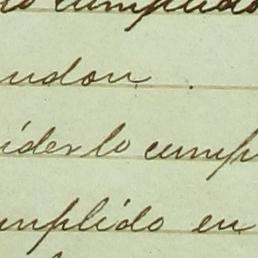 lo cumplido
udon.
ider lo cump
umplido en